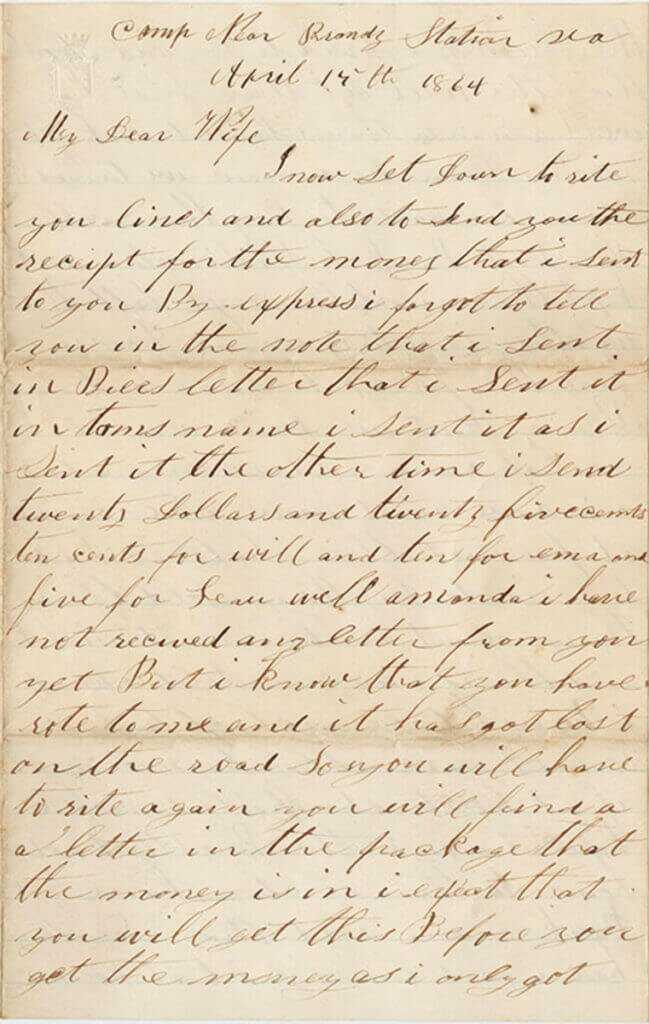 Camp Near Brandy Station va
April 15th 1864
My Dear Wife
I now Set Down to rite
you lines and also to Send you the
receipt for the money that i Sent
to you By express i forgot to tell
you in the note that i Sent
in letter that i Sent it
in toms name i Sent it as i
Sent it the other time i Send
twenty Dollars and twenty five cents
ten cents for will and ten for ema and
five for well amanda i have
not recived any letter from you
yet But i know that you have
rote to me and it has got lost
on the road So you will have
to rite again you will find a
a letter in the package that
the money is in i expect that
you will get this Before you
get the money as i only got